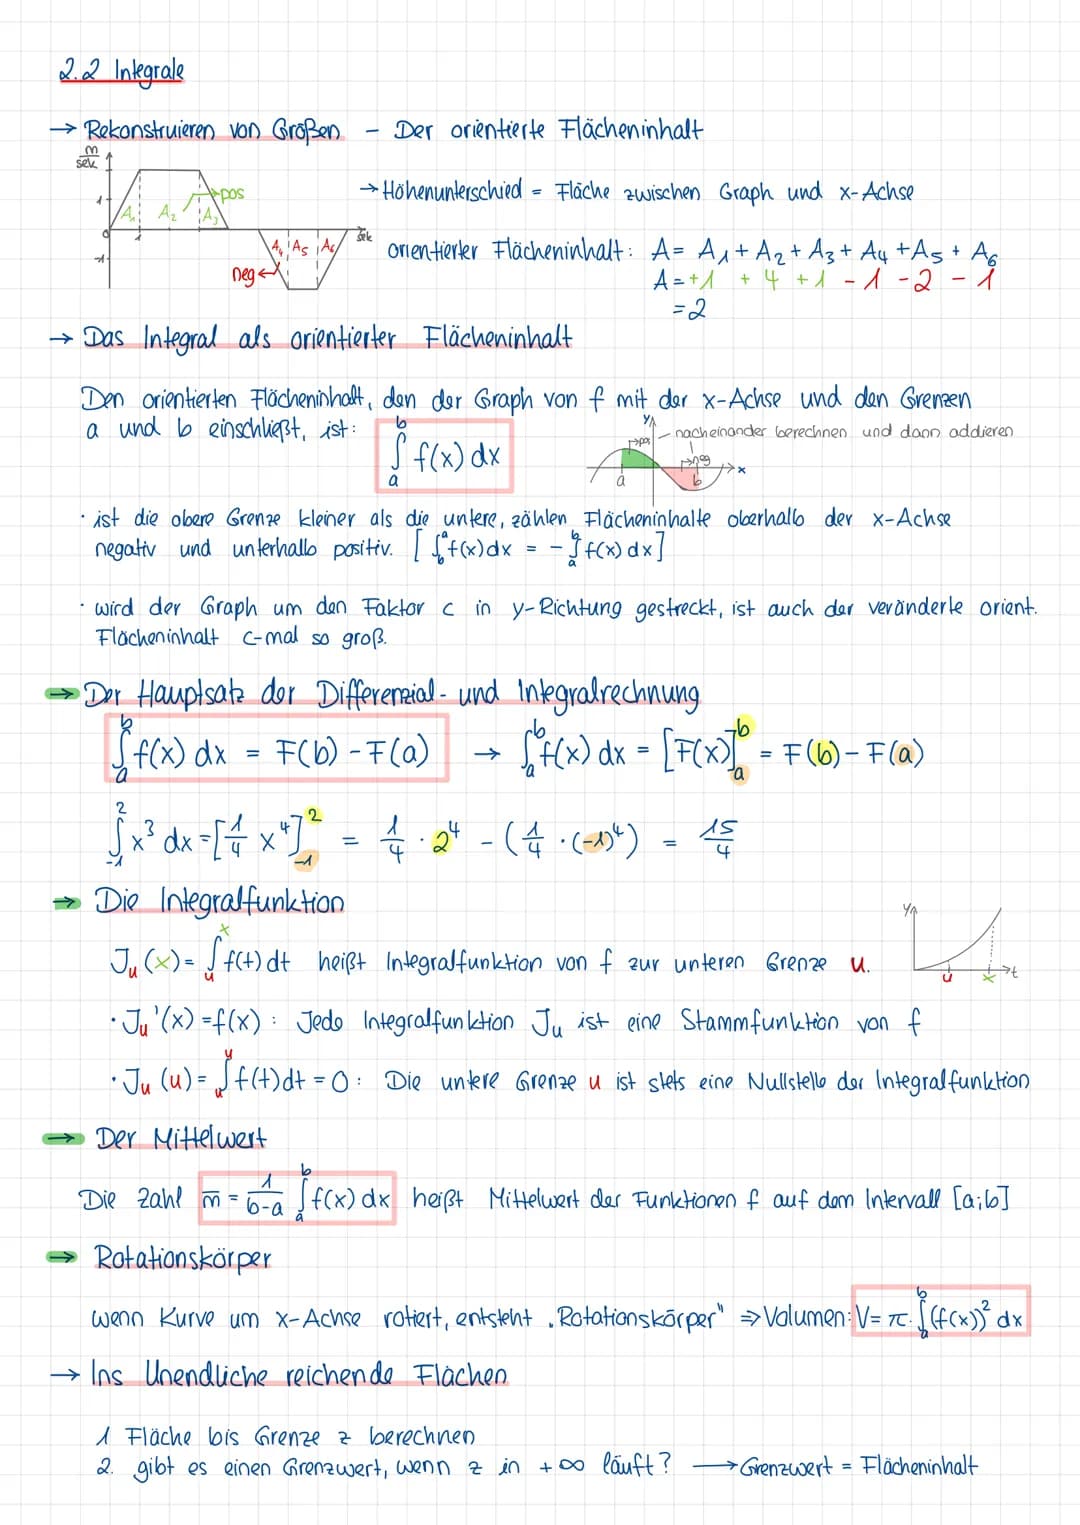 2.2 Integrale
→ Rekonstruieren von Größen - Der orientierte Flächeninhalt
m/sek
1
0
-1
1
A₁ A₂ A₃
pos
A₄ A₅ A₆
neg
sek
→ Höhenunterschied = Fläche zwischen Graph und x-Achse
orientierter Flächeninhalt: A = A₁ + A₂ + A₃ + A₄ + A₅ + A₆
A = +1 + 4 + 1 - 1 - 2 - 1
= 2
→ Das Integral als orientierter Flächeninhalt
Den orientierten Flächeninhalt, den der Graph von f mit der x-Achse und den Grenzen
a und b einschließt, ist: ∫ₐᵇ f(x) dx
y
nacheinander berechnen und dann addieren
→pos
→neg
a
b
x
· ist die obere Grenze kleiner als die untere, zählen Flächeninhalte oberhalb der x-Achse
negativ und unterhalb positiv. [ ∫_b^a f(x) dx = - ∫_a^b f(x) dx ]
· wird der Graph um den Faktor c in y-Richtung gestreckt, ist auch der veränderte orient.
Flächeninhalt c-mal so groß.
→ Der Hauptsatz der Differenzial- und Integralrechnung
∫_a^b f(x) dx = F(b) - F(a) → ∫_a^b f(x) dx = [F(x)]_a^b = F(b) - F(a)
∫_-1^2 x³ dx = [1/4 x⁴]_-1^2 = 1/4 · 2⁴ - (1/4 · (-1)⁴) = 15/4
→ Die Integralfunktion
J_u (x) = ∫_u^x f(t) dt heißt Integralfunktion von f zur unteren Grenze u.
y
u
x
t
· J_u'(x) = f(x) : Jede Integralfunktion J_u ist eine Stammfunktion von f
· J_u (u) = ∫_u^u f(t) dt = 0 : Die untere Grenze u ist stets eine Nullstelle der Integralfunktion
→ Der Mittelwert
Die Zahl m̄ = 1/(b-a) ∫_a^b f(x) dx heißt Mittelwert der Funktionen f auf dem Intervall [a;b]
→ Rotationskörper
wenn Kurve um x-Achse rotiert, entsteht „Rotationskörper" ⇒ Volumen: V = π · ∫_a^b (f(x))² dx
→ Ins Unendliche reichende Flächen
1 Fläche bis Grenze z berechnen
2. gibt es einen Grenzwert, wenn z in +∞ läuft? → Grenzwert = Flächeninhalt